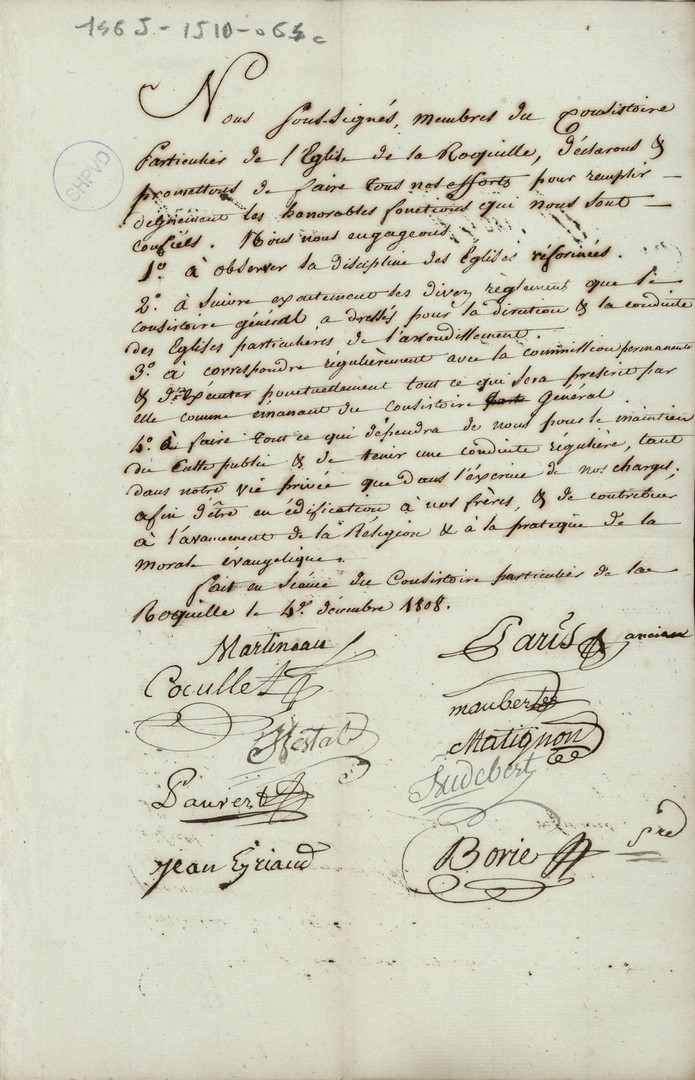 1565-1510-065c
SHPVD
Nous sous-signés, membres du Consistoire
Particulier de l'Eglise de la Roquille, déclarons &
promettons de faire tous nos efforts pour remplir —
dignement les honorables fonctions qui nous sont —
confiées. Nous nous engageons
1º. à observer la discipline des Églises réformées.
2º. à suivre exactement les divers règlemens que le
consistoire général a dressés pour la direction & la conduite
des Eglises particulières de l'arrondissement.
3º. à correspondre régulièrement avec la commission permanente
& d'exécuter ponctuellement tout ce qui sera prescrit par
elle comme émanant du consistoire général.
4º. à faire tout ce qui dépendra de nous pour le maintien
du Culte public & de tenir une conduite régulière, tant
dans notre vie privée que dans l'exercice de nos charges,
afin d'être en édification à nos frères, & de contribuer
à l'avancement de la Réligion & à la pratique de la
morale évangelique.
fait en séance du Consistoire particulier de la
Roquille le 4e. décembre 1808.
Martineau
Paris anciaux
Coculle
mauberte
Matignon
Pauvert
Jean Eyriaud
Borie